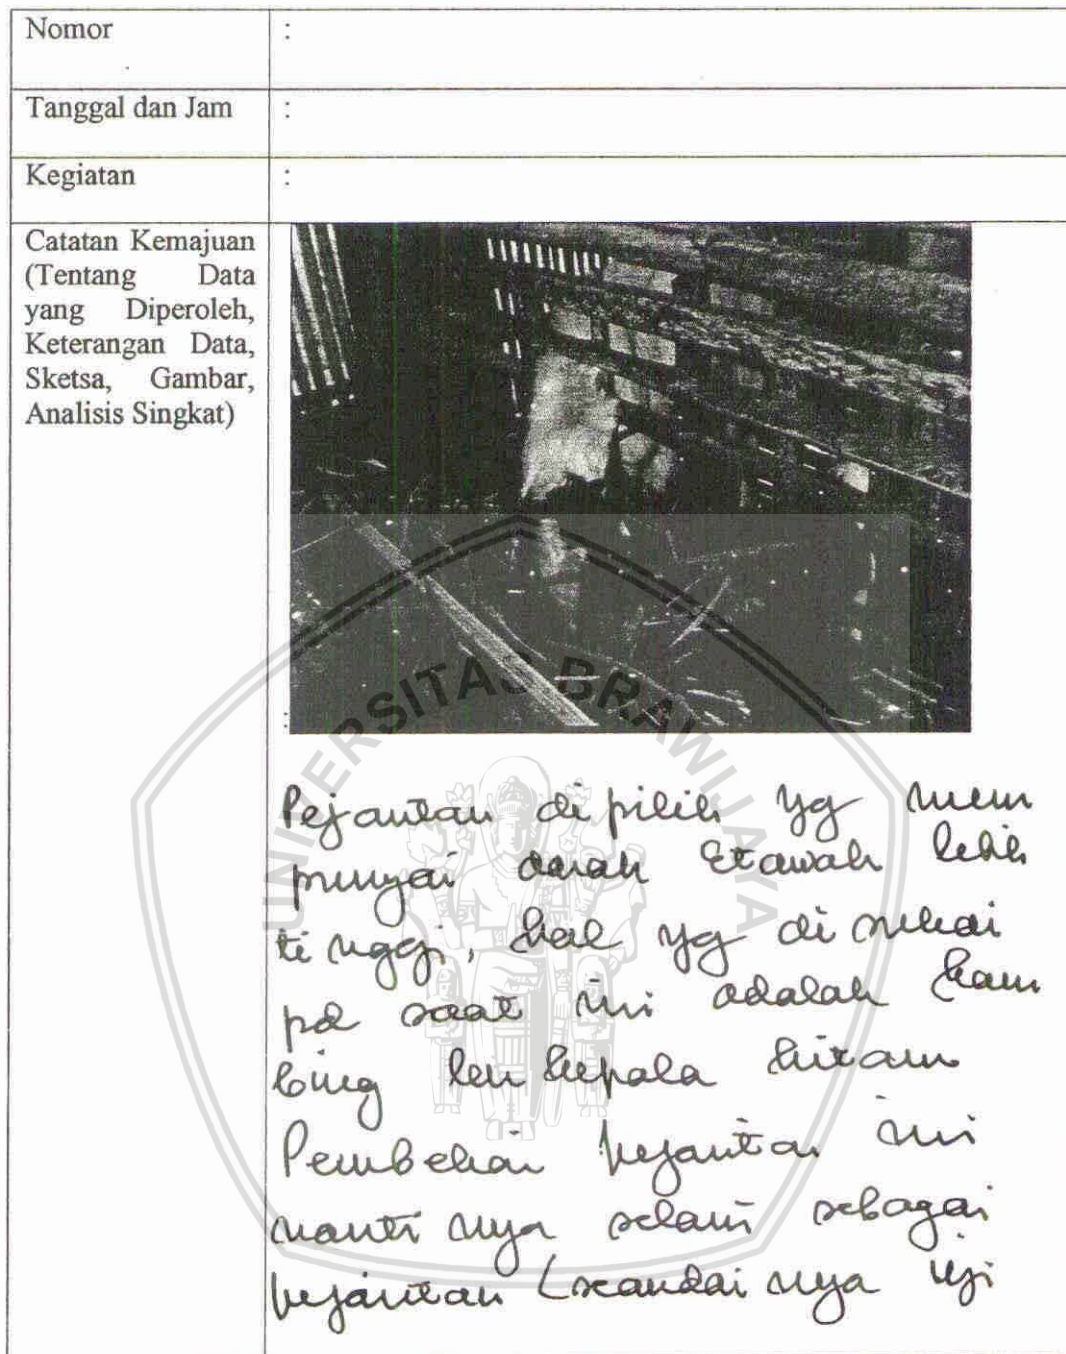 Nomor :
Tanggal dan Jam :
Kegiatan :
Catatan Kemajuan
(Tentang Data
yang Diperoleh,
Keterangan Data,
Sketsa, Gambar,
Analisis Singkat)
:
UNIVERSITAS BRAWIJAYA
Pejantan dipilih yg mem
punyai darah Etawah lebih
tinggi, hal yg di sukai
pd saat ini adalah kam
bing berkepala hitam
Pembelian pejantan ini
nantinya selain sebagai
pejantan (seandainya uji